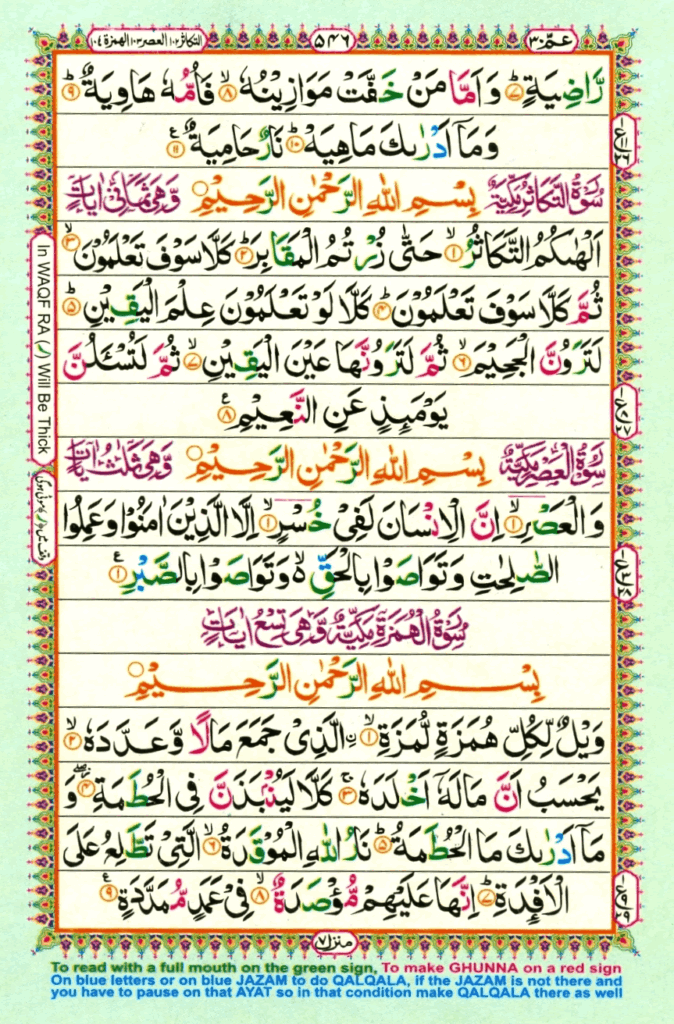 عمّ ٣٠
٥٤٦
التكاثر ١٠٢ العصر ١٠٣ الهمزة ١٠٤
رَّاضِيَةٍ ؕ‏ ﴿۷﴾ وَاَمَّا مَنْ خَفَّتْ مَوَازِيْنُهٗ ۙ‏ ﴿۸﴾ فَاُمُّهٗ هَاوِيَةٌ ؕ‏ ﴿۹﴾
وَمَاۤ اَدْرٰٮكَ مَا هِيَهْ ؕ‏ ﴿۱۰﴾ نَارٌ حَامِيَةٌ ﴿۱۱﴾
سُوْرَةُ التَّكَاثُرِ مَكِّيَّةٌ بِسْمِ اللهِ الرَّحْمٰنِ الرَّحِيْمِ وَّهِىَ ثَمَانِىْ اٰيَاتٍ
اَلْهٰٮكُمُ التَّكَاثُرُ ۙ‏ ﴿۱﴾ حَتّٰى زُرْتُمُ الْمَقَابِرَ ؕ‏ ﴿۲﴾ كَلَّا سَوْفَ تَعْلَمُوْنَ ۙ‏ ﴿۳﴾
ثُمَّ كَلَّا سَوْفَ تَعْلَمُوْنَ ؕ‏ ﴿۴﴾ كَلَّا لَوْ تَعْلَمُوْنَ عِلْمَ الْيَقِيْنِ ؕ‏ ﴿۵﴾
لَتَرَوُنَّ الْجَحِيْمَ ۙ‏ ﴿۶﴾ ثُمَّ لَتَرَوُنَّهَا عَيْنَ الْيَقِيْنِ ۙ‏ ﴿۷﴾ ثُمَّ لَتُسْـَٔـلُنَّ
يَوْمَٮِٕذٍ عَنِ النَّعِيْمِ ﴿۸﴾
سُوْرَةُ الْعَصْرِ مَكِّيَّةٌ بِسْمِ اللهِ الرَّحْمٰنِ الرَّحِيْمِ وَّهِىَ ثَلٰثُ اٰيَاتٍ
وَالْعَصْرِ ۙ‏ ﴿۱﴾ اِنَّ الْاِنْسَانَ لَفِىْ خُسْرٍ ۙ‏ ﴿۲﴾ اِلَّا الَّذِيْنَ اٰمَنُوْا وَعَمِلُوا
الصّٰلِحٰتِ وَتَوَاصَوْا بِالْحَقِّ ۙ وَتَوَاصَوْا بِالصَّبْرِ ﴿۳﴾
سُوْرَةُ الْهُمَزَةِ مَكِّيَّةٌ وَّهِىَ تِسْعُ اٰيَاتٍ
بِسْمِ اللهِ الرَّحْمٰنِ الرَّحِيْمِ
وَيْلٌ لِّكُلِّ هُمَزَةٍ لُّمَزَةٍ ۙ‏ ﴿۱﴾ ۨالَّذِىْ جَمَعَ مَالًا وَّعَدَّدَهٗ ۙ‏ ﴿۲﴾
يَحْسَبُ اَنَّ مَالَهٗۤ اَخْلَدَهٗ ۚ‏ ﴿۳﴾ كَلَّا لَيُنْۢبَذَنَّ فِى الْحُطَمَةِ ۖ‏ ﴿۴﴾ وَ
مَاۤ اَدْرٰٮكَ مَا الْحُطَمَةُ ؕ‏ ﴿۵﴾ نَارُ اللهِ الْمُوْقَدَةُ ۙ‏ ﴿۶﴾ الَّتِىْ تَطَّلِعُ عَلَى
الْاَفْـِٕدَةِ ؕ‏ ﴿۷﴾ اِنَّهَا عَلَيْهِمْ مُّؤْصَدَةٌ ۙ‏ ﴿۸﴾ فِىْ عَمَدٍ مُّمَدَّدَةٍ ﴿۹﴾
منزل ٧
In WAQF RA (ر) Will Be Thick
To read with a full mouth on the green sign, To make GHUNNA on a red sign
On blue letters or on blue JAZAM to do QALQALA, if the JAZAM is not there and
you have to pause on that AYAT so in that condition make QALQALA there as well